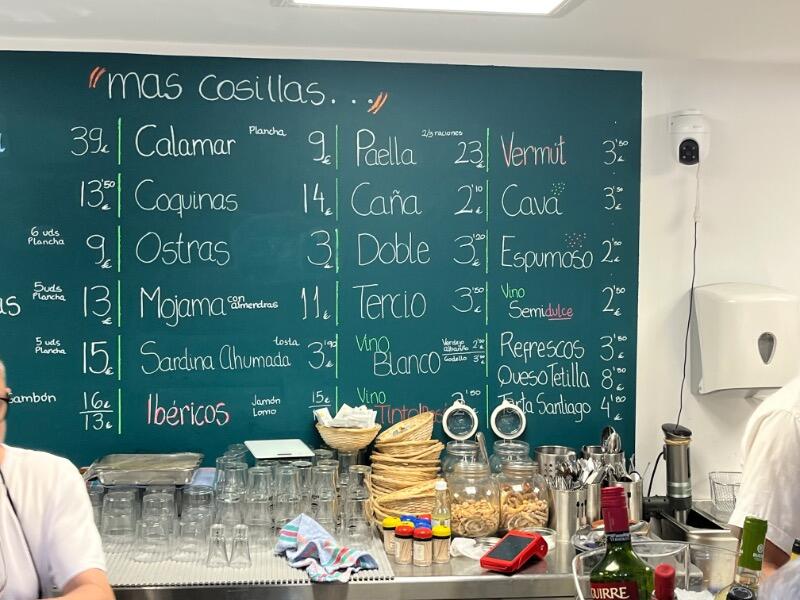 "mas cosillas..."
39€
13'50€
6 uds
Plancha
9€
5 uds
Plancha
13€
5 uds
Plancha
15€
16€
13€
Calamar Plancha 9€
Coquinas 14€
Ostras 3€
Mojama con almendras 11€
Sardina Ahumada tosta 3'90€
Ibéricos Jamón 15€
Lomo
Paella 2/3 raciones 23€
Caña 2'10€
Doble 3'20€
Tercio 3'50€
Vino
Blanco
Verdejo
Albariño
Godello
Vino
Vermut 3'50€
Cava 3'50€
Espumoso 2'50€
Vino
Semidulce 2'50€
Refrescos 3'50€
Queso Tetilla 8'50€
Tarta Santiago 4'50€